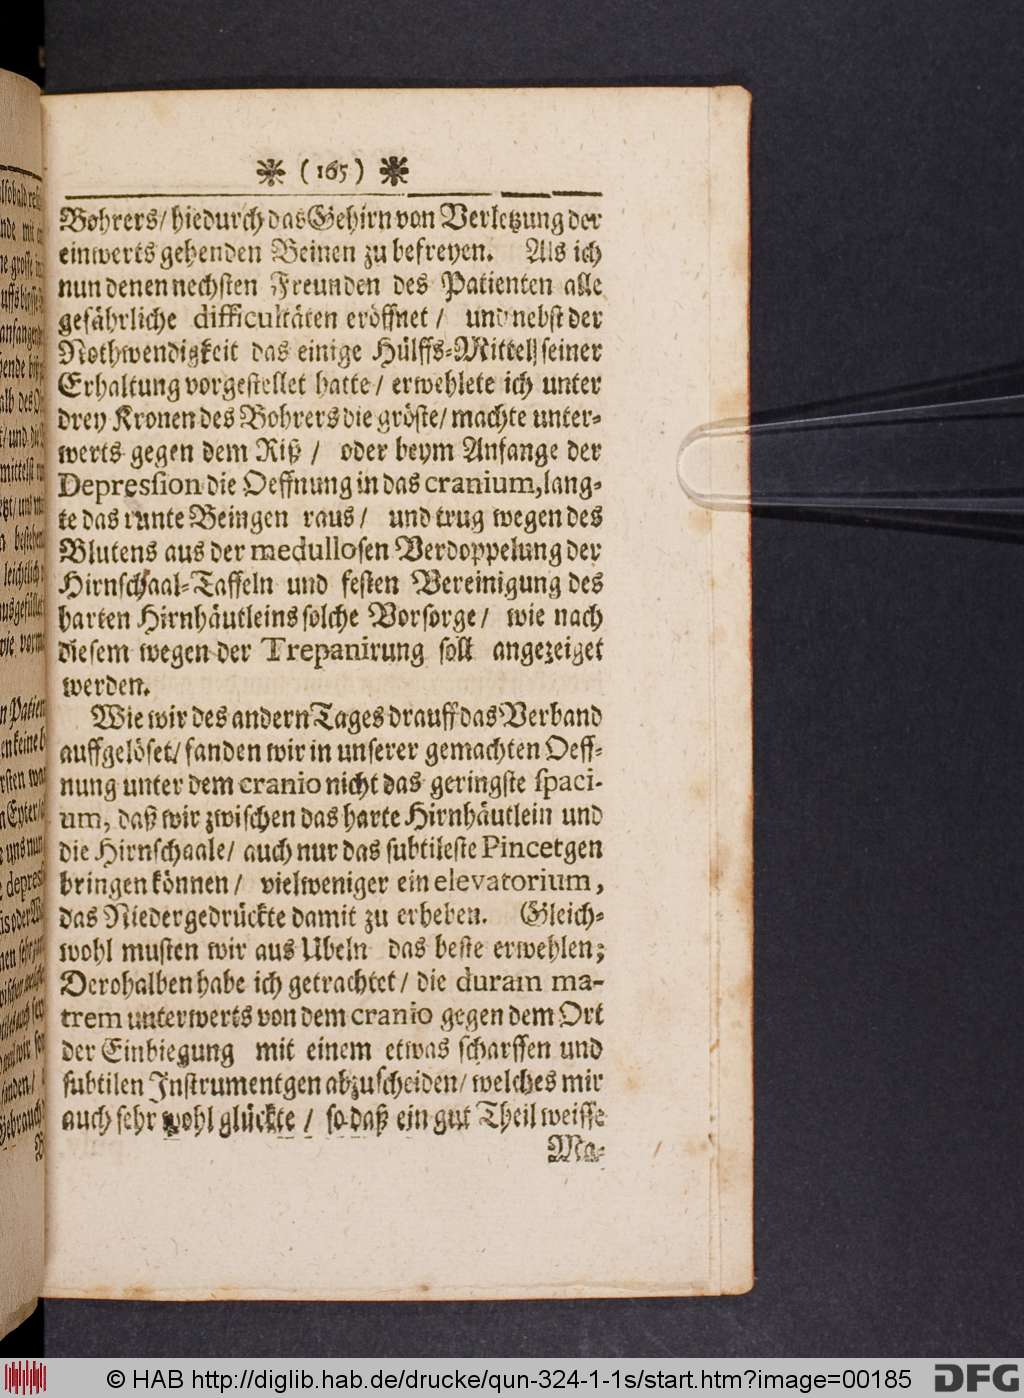 ( 165 )
Bohrers/ hiedurch das Gehirn von Verletzung der
einwerts gehenden Beinen zu befreyen. Als ich
nun denen nechsten Freunden des Patienten alle
gefährliche difficultäten eröffnet / und nebst der
Nothwendigkeit das einige Hülffs-Mittel seiner
Erhaltung vorgestellet hatte / erwehlete ich unter
drey Kronen des Bohrers die gröste/ machte unter-
werts gegen dem Riß / oder beym Anfange der
Depression die Oeffnung in das cranium, lang-
te das runte Beingen raus / und trug wegen des
Blutens aus der medullosen Verdoppelung der
Hirnschaal-Taffeln und festen Vereinigung des
harten Hirnhäutleins solche Vorsorge / wie nach
diesem wegen der Trepanirung soll angezeiget
werden.
Wie wir des andern Tages drauff das Verband
auffgelöset/ fanden wir in unserer gemachten Oeff-
nung unter dem cranio nicht das geringste spaci-
um, daß wir zwischen das harte Hirnhäutlein und
die Hirnschaale/ auch nur das subtileste Pincetgen
bringen können / vielweniger ein elevatorium,
das Niedergedrückte damit zu erheben. Gleich-
wohl musten wir aus Ubeln das beste erwehlen;
Derohalben habe ich getrachtet / die duram ma-
trem unterwerts von dem cranio gegen dem Ort
der Einbiegung mit einem etwas scharffen und
subtilen Instrumentgen abzuscheiden/ welches mir
auch sehr wohl glückte / so daß ein gut Theil weisse
Ma-
© HAB http://diglib.hab.de/drucke/qun-324-1-1s/start.htm?image=00185
DFG